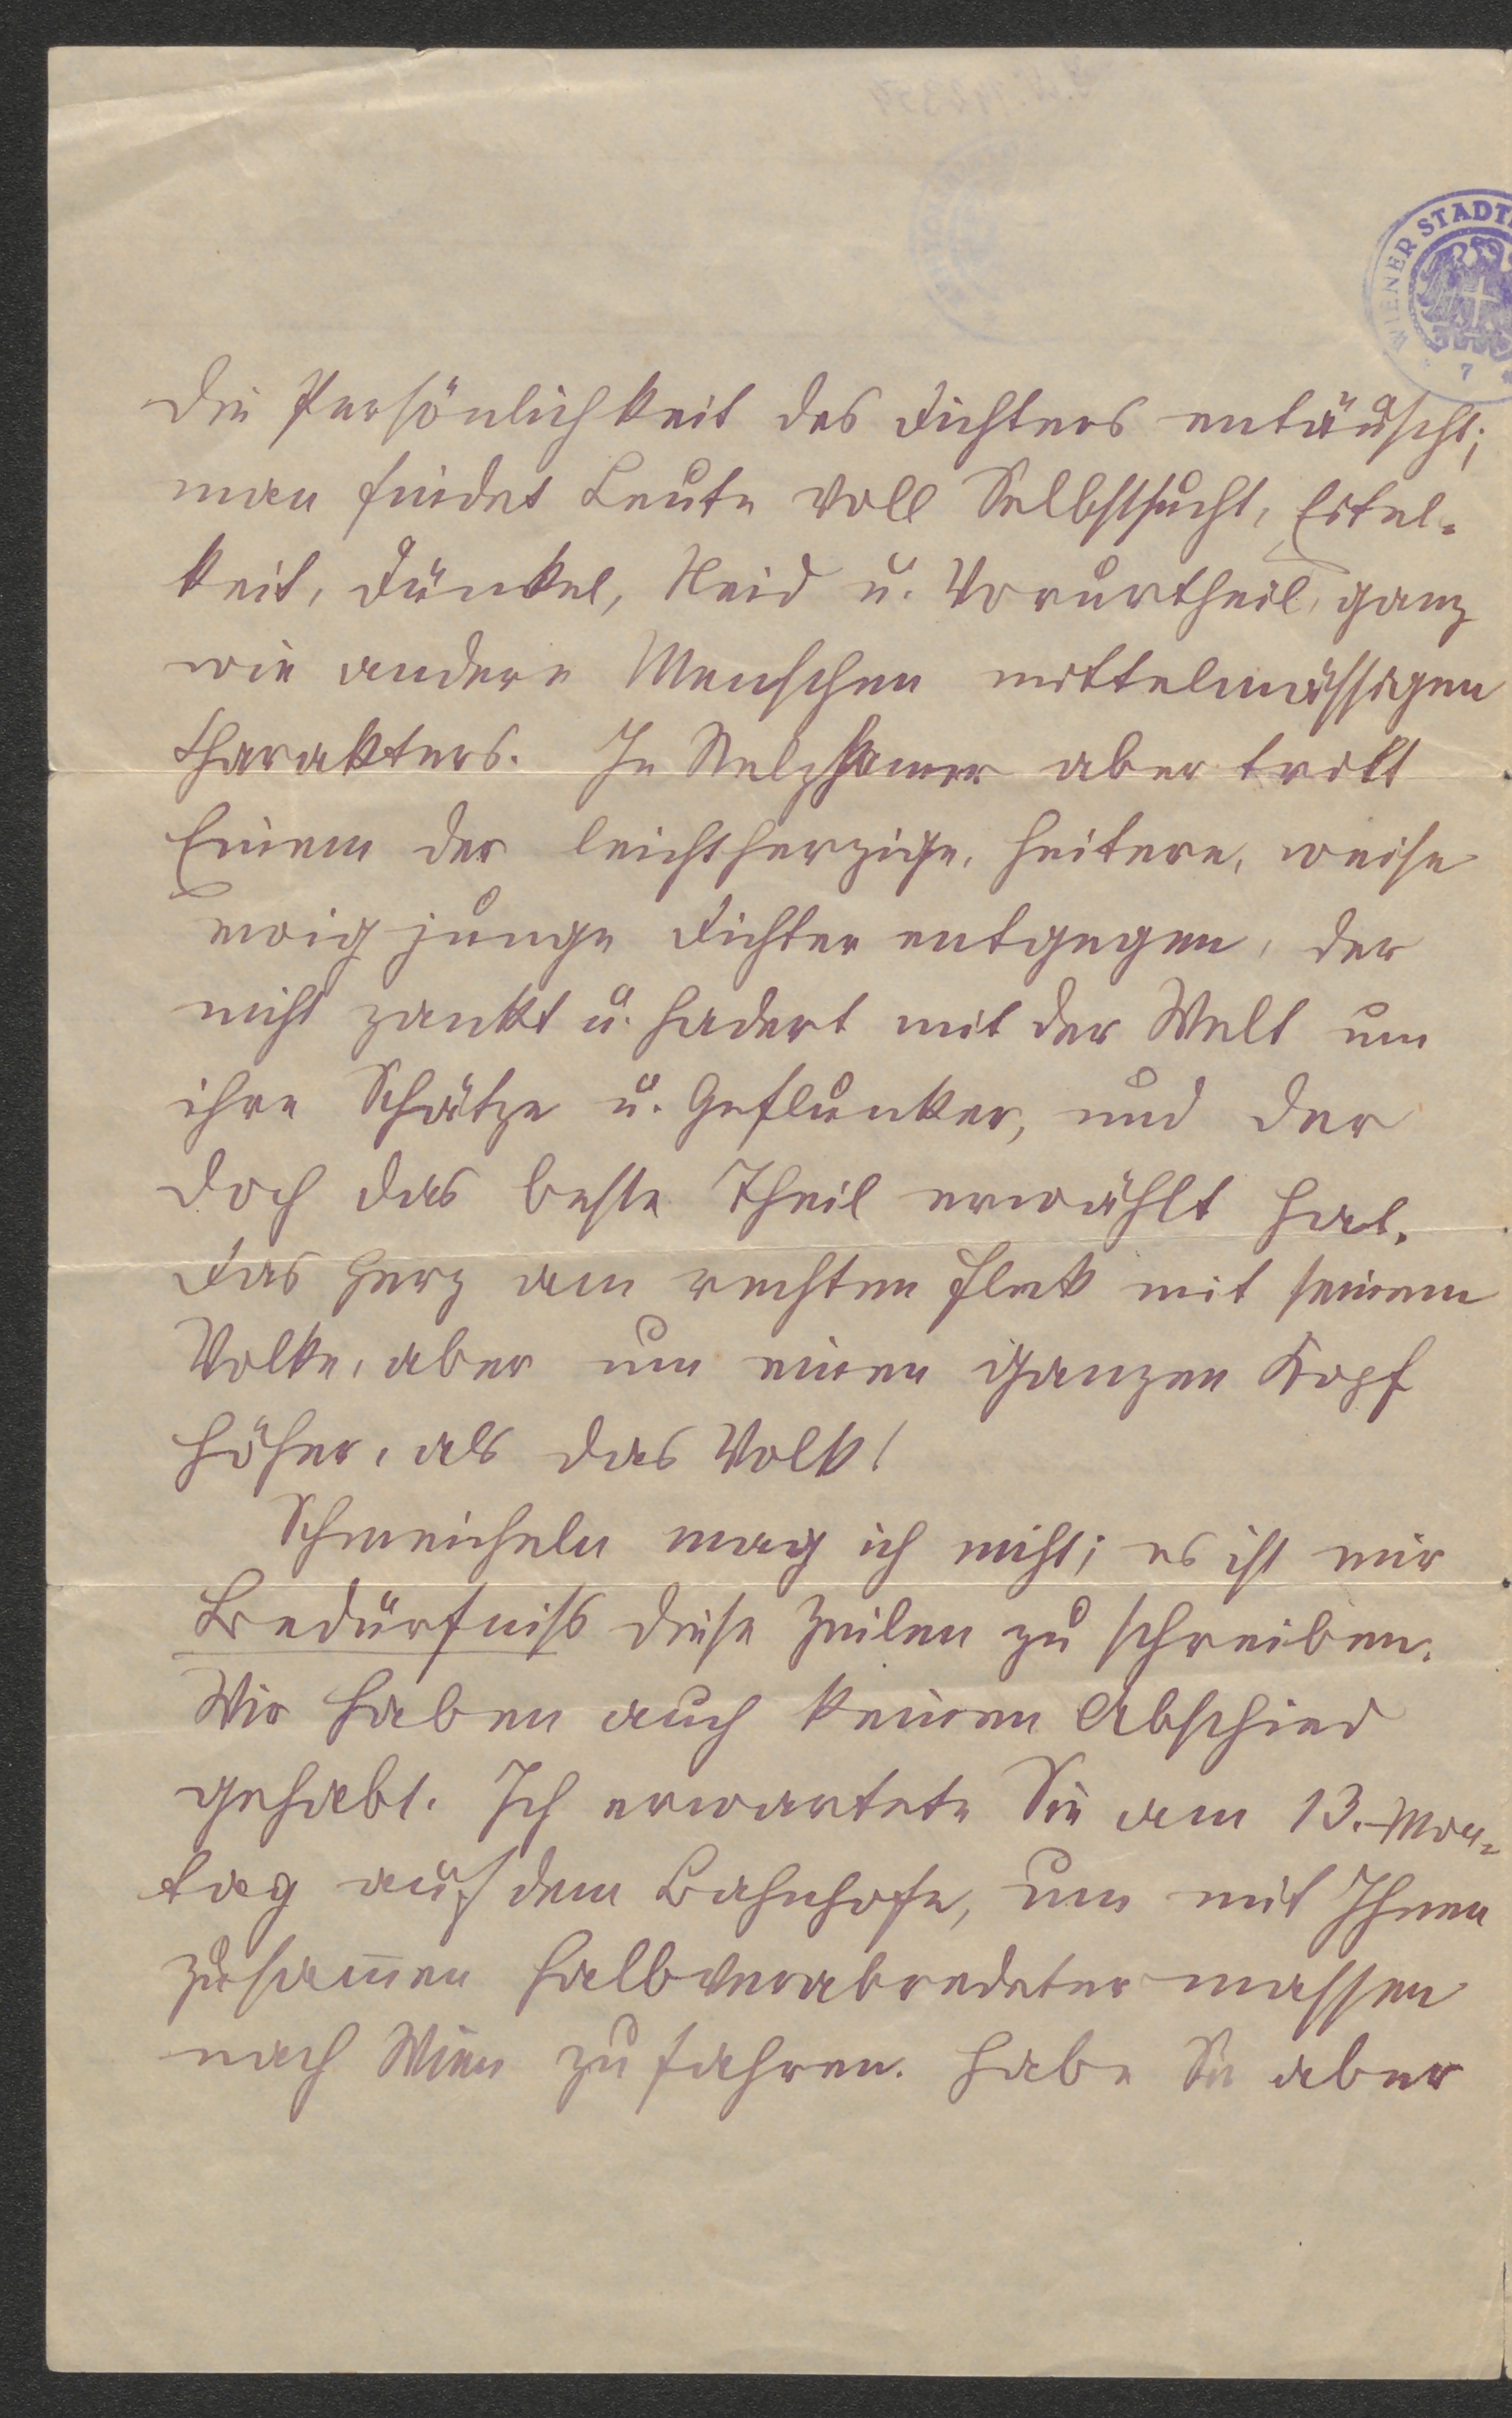 WIENER STADT
7
die Persönlichkeit des Dichters entäuscht;
man findet Leute voll Selbstsucht, Eitel-
keit, Dünkel, Neid u. Vorurtheil, ganz
wie andere Menschen mittelmässigen
Charakters. In Stelzhamer aber tritt
Einem der leichtherzige, heitere, weise
ewig junge Dichter entgegen, der
nicht zankt u. hadert mit der Welt um
ihre Schätze u. Geflunker, und der
doch das beste Theil erwählt hat.
Das Herz am rechten Flek mit seinem
Volke, aber um einen ganzen Kopf
höher, als das Volk!
Schmeicheln mag ich nicht; es ist mir
Bedürfniss diese Zeilen zu schreiben.
Wir haben auch keinen Abschied
gehabt. Ich erwartete Sie am 13. Mon-
tag auf dem Bahnhofe, um mit Ihnen
zusam̅en halbverabredeter massen
nach Wien zu fahren. Habe Sie aber